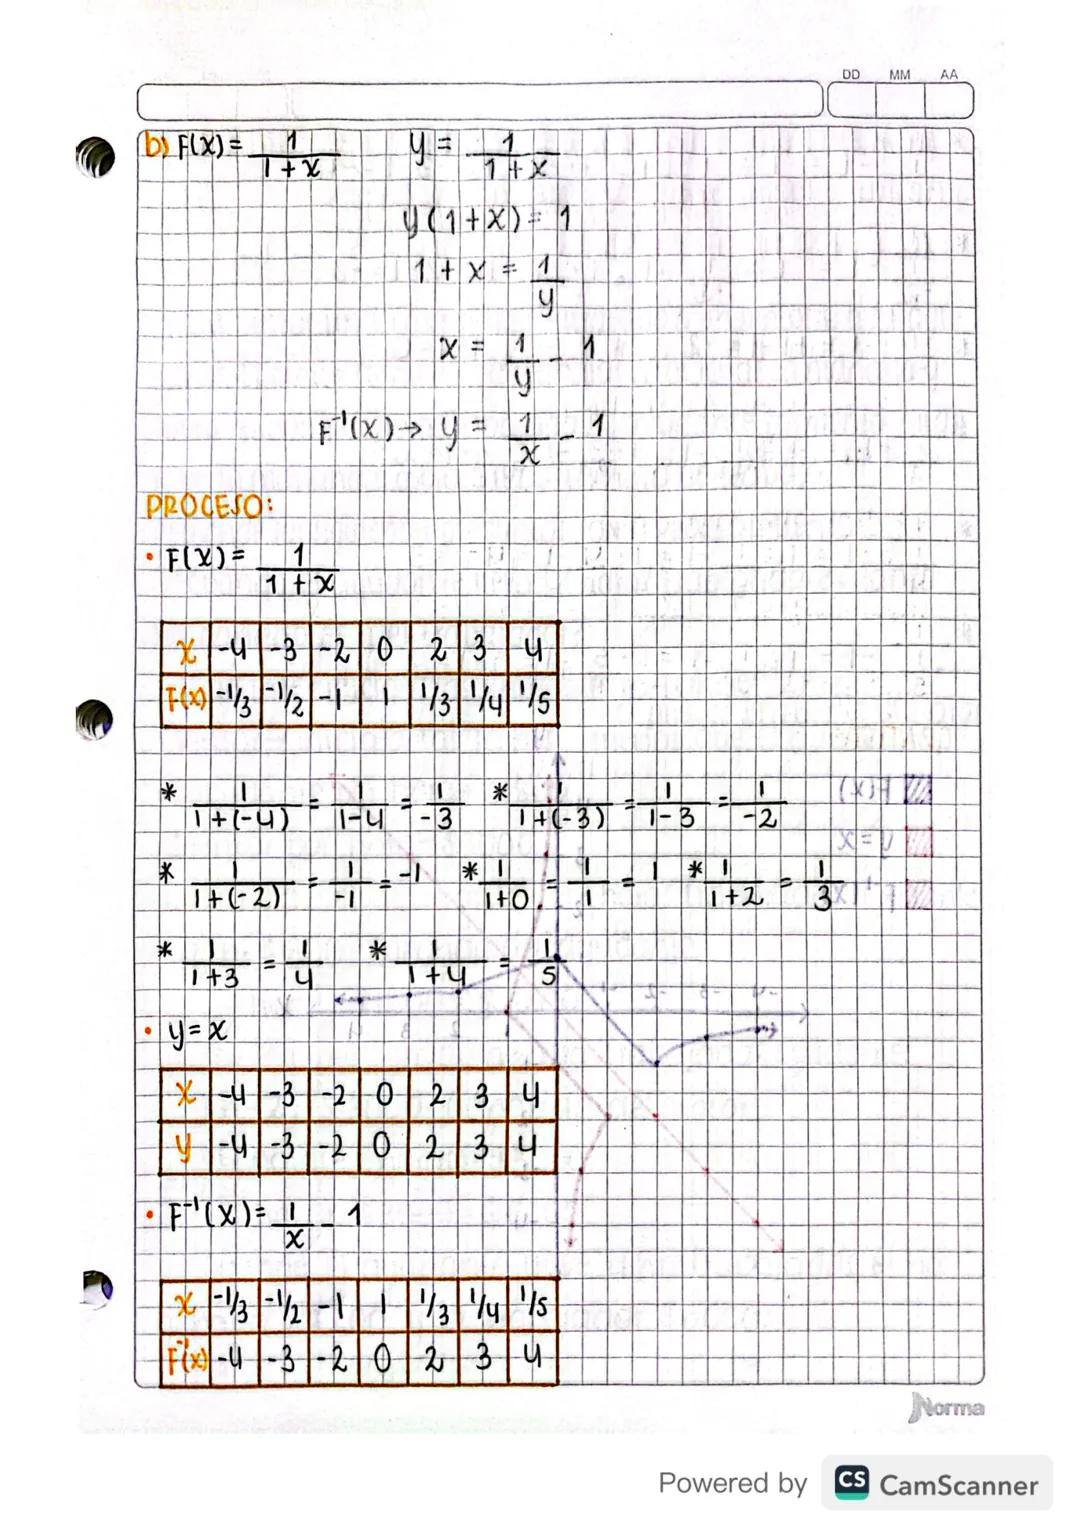 DD MM AA
b) F(x) = 1/(1+x)    y = 1/(1+x)
y(1+x) = 1
1 + x = 1/y
x = 1/y - 1
F⁻¹(x) → y = 1/x - 1
PROCESO:
• F(x) = 1/(1+x)
x -4 -3 -2 0 2 3 4
F(x) -1/3 -1/2 -1 1 1/3 1/4 1/5
* 1/(1+(-4)) = 1/(1-4) = 1/-3    * 1/(1+(-3)) = 1/(1-3) = 1/-2
* 1/(1+(-2)) = 1/-1 = -1    * 1/(1+0) = 1/1 = 1    * 1/(1+2) = 1/3
* 1/(1+3) = 1/4    * 1/(1+4) = 1/5
• y = x
x -4 -3 -2 0 2 3 4
y -4 -3 -2 0 2 3 4
• F⁻¹(x) = 1/x - 1
x -1/3 -1/2 -1 1 1/3 1/4 1/5
F⁻¹(x) -4 -3 -2 0 2 3 4
Norma
Powered by CS CamScanner